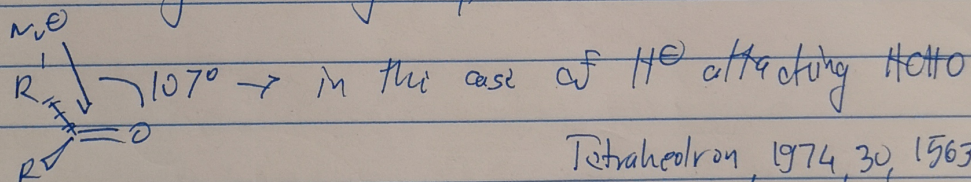 Nu⊖
R'
107° → in the case of H⊖ attacking HCHO
R
O
Tetrahedron, 1974, 30, 1563